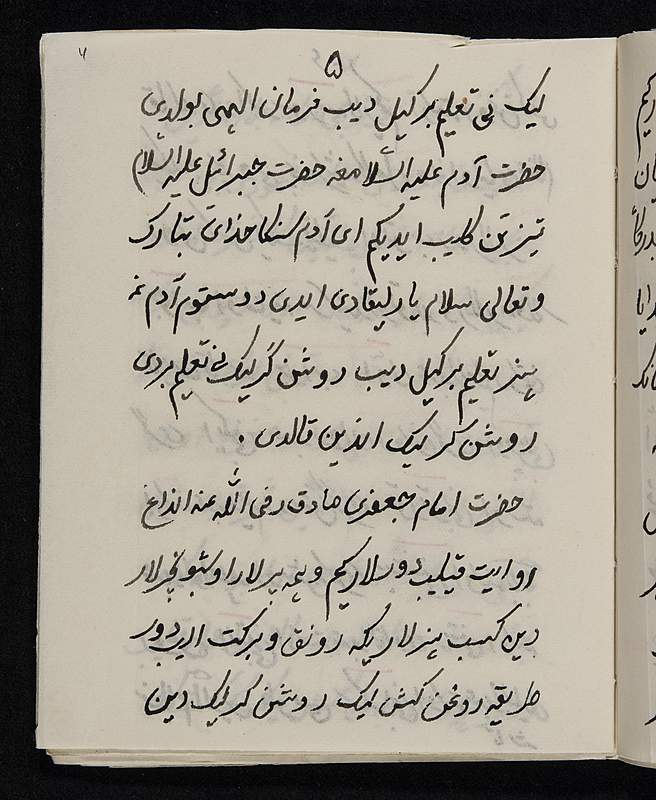 ۵
لیک نی تعلیم بر کیل دیب فرمان الهی بولدی
حضرت آدم علیه السلامغه حضرت جبرائل علیه السلام
تیزتن کلیب ایدیکم ای آدم سنکا خدای تبارک
و تعالی سلام یارلیقادی ایدی دوستوم آدم غه
هنر تعلیم بر کیل دیب روشن گرلیک نی تعلیم بردی
روشن کر لیک انذین قالدی .
حضرت امام جعفری صادق رضی الله عنه انداغ
روایت قیلیب دورلار کیم و همه پیرلار اوشبو
دین کسب هنرلاریکه رونق و برکت الیب دور
طریقه روغن کش لیک روشن کرلیک دین